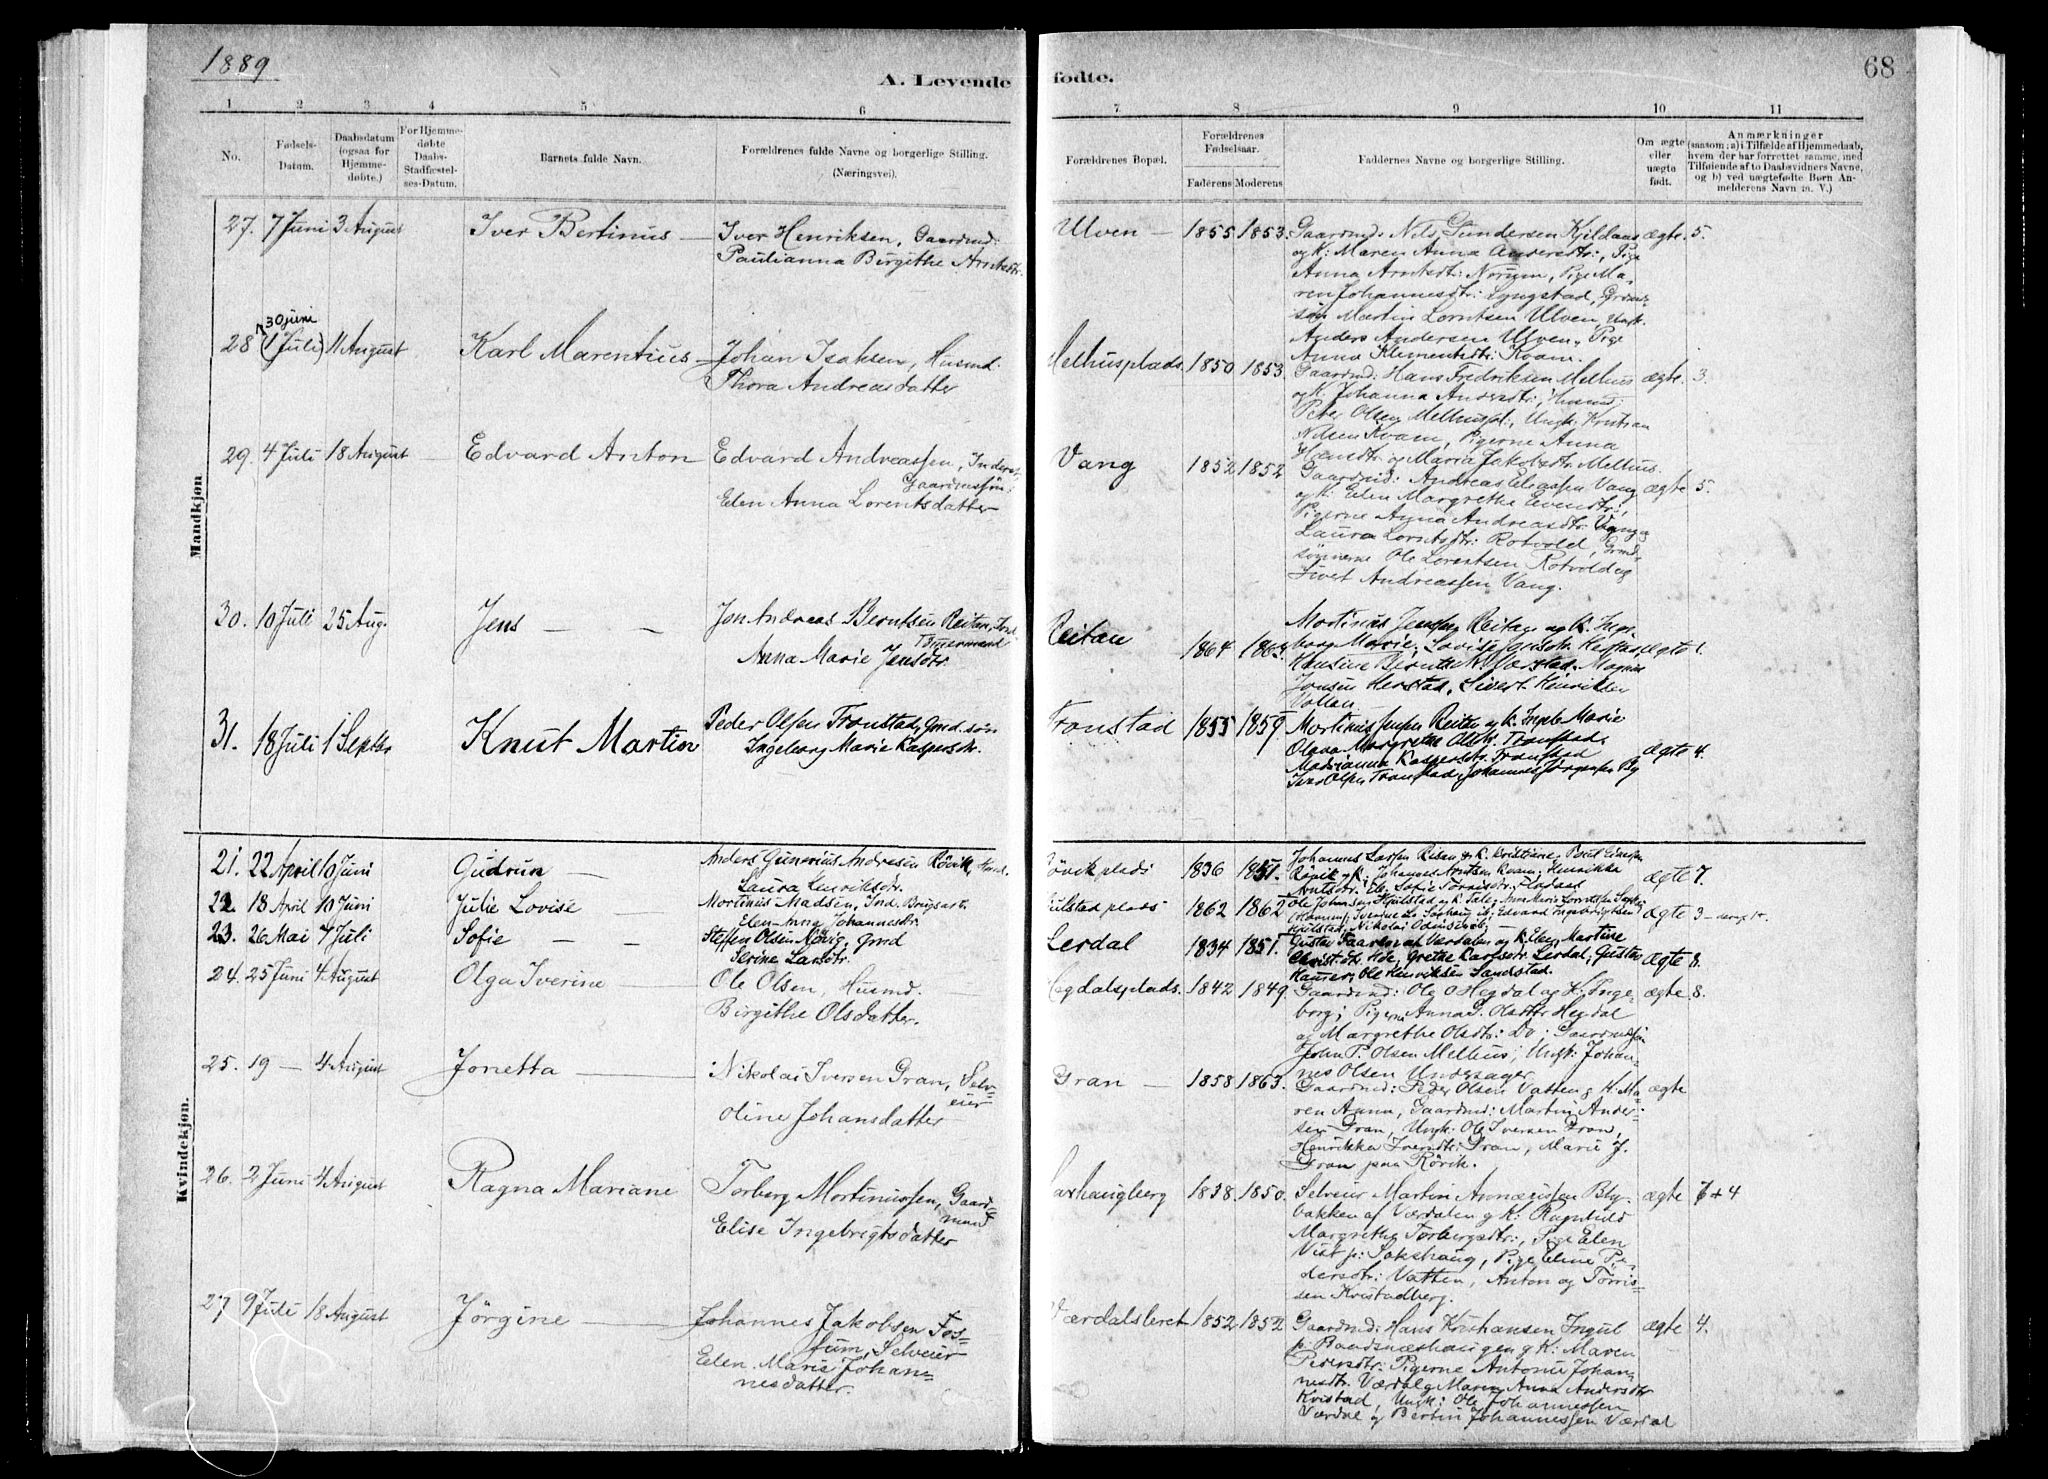 1889
A. Levende
fødte.
68
1 2 3 4 5 6 7 8 9 10 11
No.
Fødsels-
Datum.
Daabsdatum
(ogsaa for
Hjemme-
døbte.)
For Hjemme-
døbte
Daabs-
Stadfæstel-
ses-Datum.
Barnets fulde Navn.
Forældrenes fulde Navne og borgerlige Stilling.
(Næringsvei).
Forældrenes Bopæl.
Forældrenes
Fødselsaar.
Faderens Moderens
Faddernes Navne og borgerlige Stilling.
Om ægte
eller
uægte
født.
Anmærkninger
(saasom: a) i Tilfælde af Hjemmedaab,
hvem der har forrettet samme, med
Tilføiende af to Daabsvidners Navne,
og b) ved uægtefødte Børn An-
melderens Navn m. V.)
Mandkjøn
27. 7 Juni 3 August Iver Bertinus — Iver Henriksen, Gaardmd:
Paulianna Birgithe Arntsdtr.
Ulven — 1855 1853. Gaardmd: Nils Gundersen Kjildaas ægte. 5.
og K: Maren Anna Andersdtr:, Pige
Anna Arntsdtr: Norum, Pige Ma-
ren Johannesdtr: Lyngstad, Grmd-
søn Martin Lorntsen Ulven, Ungk:
Anders Andersen Ulven, Pige
Anna Klementsdtr: Kvam.
30 juni
28 (1 Juli) 11 August Karl Marentius — Johan Isaksen, Husmd.
Thora Andreasdatter
Melhusplads. 1850 1853. Gaardmd: Hans Fredriksen Melhus ægte. 3.
og K. Johanna Andersdtr:, Husmd:
Peter Olsen Melhuspl:, Ungk: Kristian
Nilsen Kvam, Pigerne Anna
Hansdtr: og Maria Jakobsdtr: Melhus.
29. 4 Juli 18 August Edvard Anton Edvard Andreassen, Inderst,
Gaardmssøn:
Elen Anna Lorentsdatter
Vang 1852 1852 Gaardmd: Andreas Eliassen Vang ægte 5.
og K: Elen Margrethe Evensdtr:,
Pigerne Anna Andreasdtr: Vang og
Laura Lorntsdtr: Rotvold, Grmd-
sønnerne Ole Lorentsen Rotvold og
Sivert Andreassen Vang.
30. 10 Juli 25 Aug. Jens — — Jon Andreas Berntsen Reitan, Ind.
Tømmermand
Anna Marie Jensdtr.
Reitan 1864 1863. Mortinus Jensen Reitan og K. Inge-
borg Marie; Lovise Jensdtr. Herstad ægte 1.
Hansine Berntsdtr. Verstad. Magnus
Jonsen Herstad, Sivert Henriksen
Vollan
31. 18 Juli 1 Septbr Knut Martin Peder Olsen Tronstad, Gmd. søn
Ingeborg Marie Kaspersdtr.
Tronstad 1855 1859 Mortinus Jensen Reitan og K. Ingeb. Marie
Olava Margrethe Olsdtr. Tronstad.
Madsianna Kaspersdtr. Tronstad ægte 4.
Iver Olsen Tronstad, Johannes Jørgensen By
Kvindekjøn.
21. 22 April 10 Juni Gudrun — Anders Gunerius Andresen Rövik, Husmd.
Laura Henriksdtr.
Rövikplads 1836 1851. Johannes Larsen Reitan og K. Kristiane, Paul Einarsen
Rövik og K., Johannes Arntsen Kvam, Henrikka ægte 7.
Arntsdtr: Eb, Sofie Tørrisdtr. Pladsas
22. 18 April 10 Juni Julie Lovise — Mortinus Madsen, Ind. Brugsarb.
Elen Anna Johannesdtr.
Hulstadplads 1862 1862 Ole Johansen Hjulstad og K.
Hjulstad, Nikolai Odinsen ib. ægte 3
23. 26 Mai 7 Juli Sofie — — Steffen Olsen Növig, Gmd
Serine Larsdtr.
Lerdal 1834 1851. Gustav Faaren af Værdalen og K. Elen Martine
Christ.dtr. Hde, Grethe Karlsdtr. Lerdal, Gustav ægte 8.
Hammer, Ole Henriksen Sandstad.
24. 25 Juni 4 August Olga Iverine — Ole Olsen, Husmd.
Birgithe Olsdatter.
Hegdalsplads. 1842 1849. Gaardmd: Ole O Hegdal og K: Inge- ægte. 8.
borg; Pigerne Anna G. Olsdtr Hegdal
og Margrethe Olsdtr: Do; Gaardmdsøn
John P. Olsen Melhus; Ungk: Johan-
nes Olsen Undersager.
25. 19 — 4 August Jonetta — Nikolai Iversen Gran, Selv-
eier
Oline Johansdatter
Gran — 1858 1863. Gaardmd: Peder Olsen Vatten og K. Ma- ægte
ren Anna, Gaardmd: Martin Ander-
sen Gran, Ungk: Ole Iversen Gran,
Henrikka Iversdtr: Gran, Marie J.
Gran paa Rövik.
26. 2 Juni 4 August Ragna Mariane Torberg Mortinussen, Gaard-
mand
Elise Ingebrigtsdatter
Saxhaugberg 1838. 1850. Selveier Martin Arnægissen Bly- ægte 7+4
bakken af Værdalen og K: Ragnhild
Margrethe Torbergsdtr:, Pige Elen
Vist p: Sakshaug, Pige Eline Pe-
dersdtr: Vatten, Anton og Tørris-
sen Kvistadberg.
27 9 Juli 18 August Jørgine — Johannes Jakobsen Fos-
sum, Selveier
Elen Marie Johan-
nesdatter.
Værdalsleret 1852 1852 Gaardmd: Hans Kristiansen Ingul ægte 4.
p: Baadsnæshaugen og K: Maren
Pedersdtr: Pigerne Antonie Johan-
nesdtr. Værdal og Maren Anna Andersdtr
Kvistad, Ungk: Ole Johannessen
Værdal og Bertin Johannessen Værdal